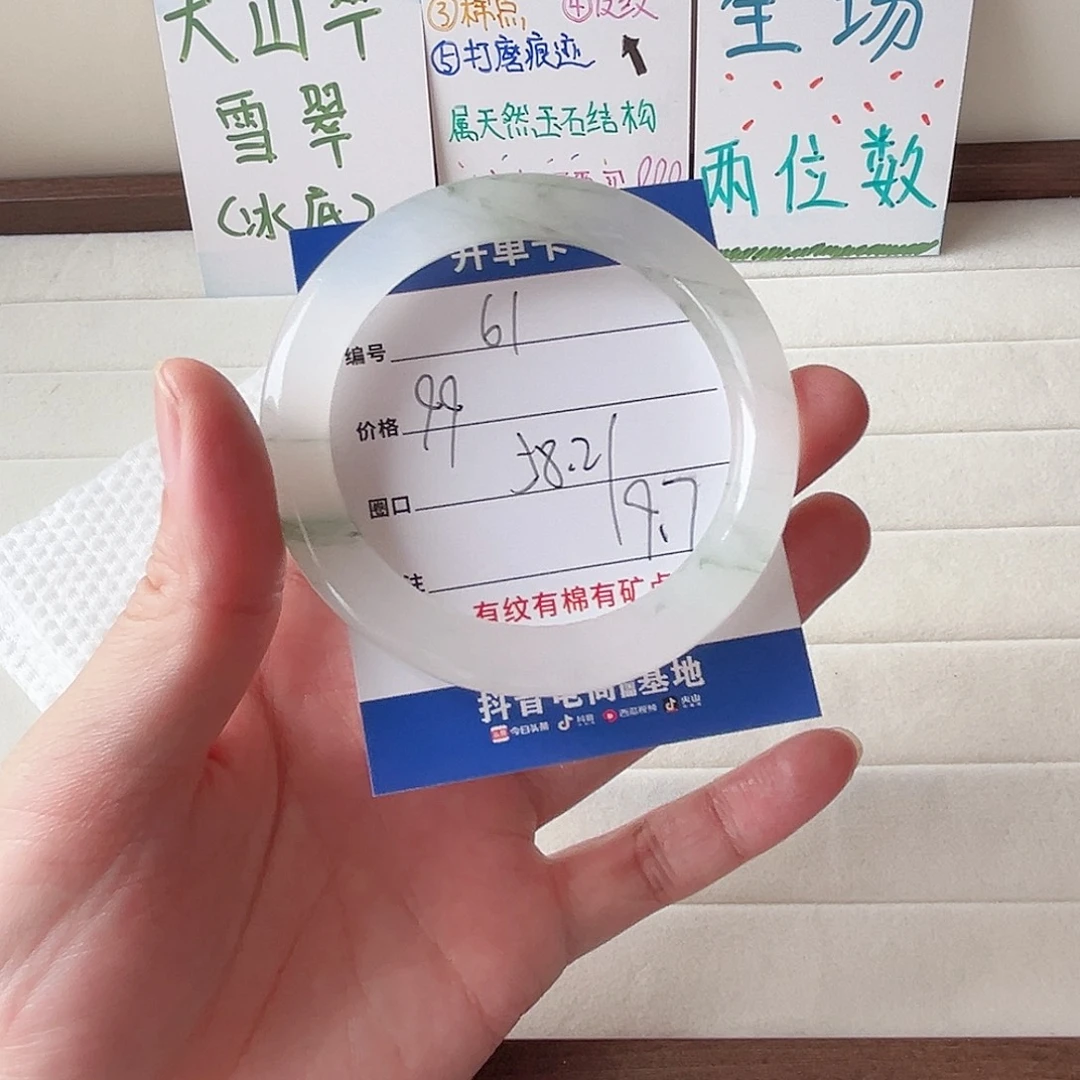 大山翠
雪翠
(冰底)
③棉点, ④皮纹
⑤打磨痕迹
属天然玉石结构
全场
两位数
开单卡
编号 61
价格 99
圈口 58.2/
19.7
注
有纹有棉有矿点
抖音电商 基地
今日头条 抖音 西瓜视频 火山